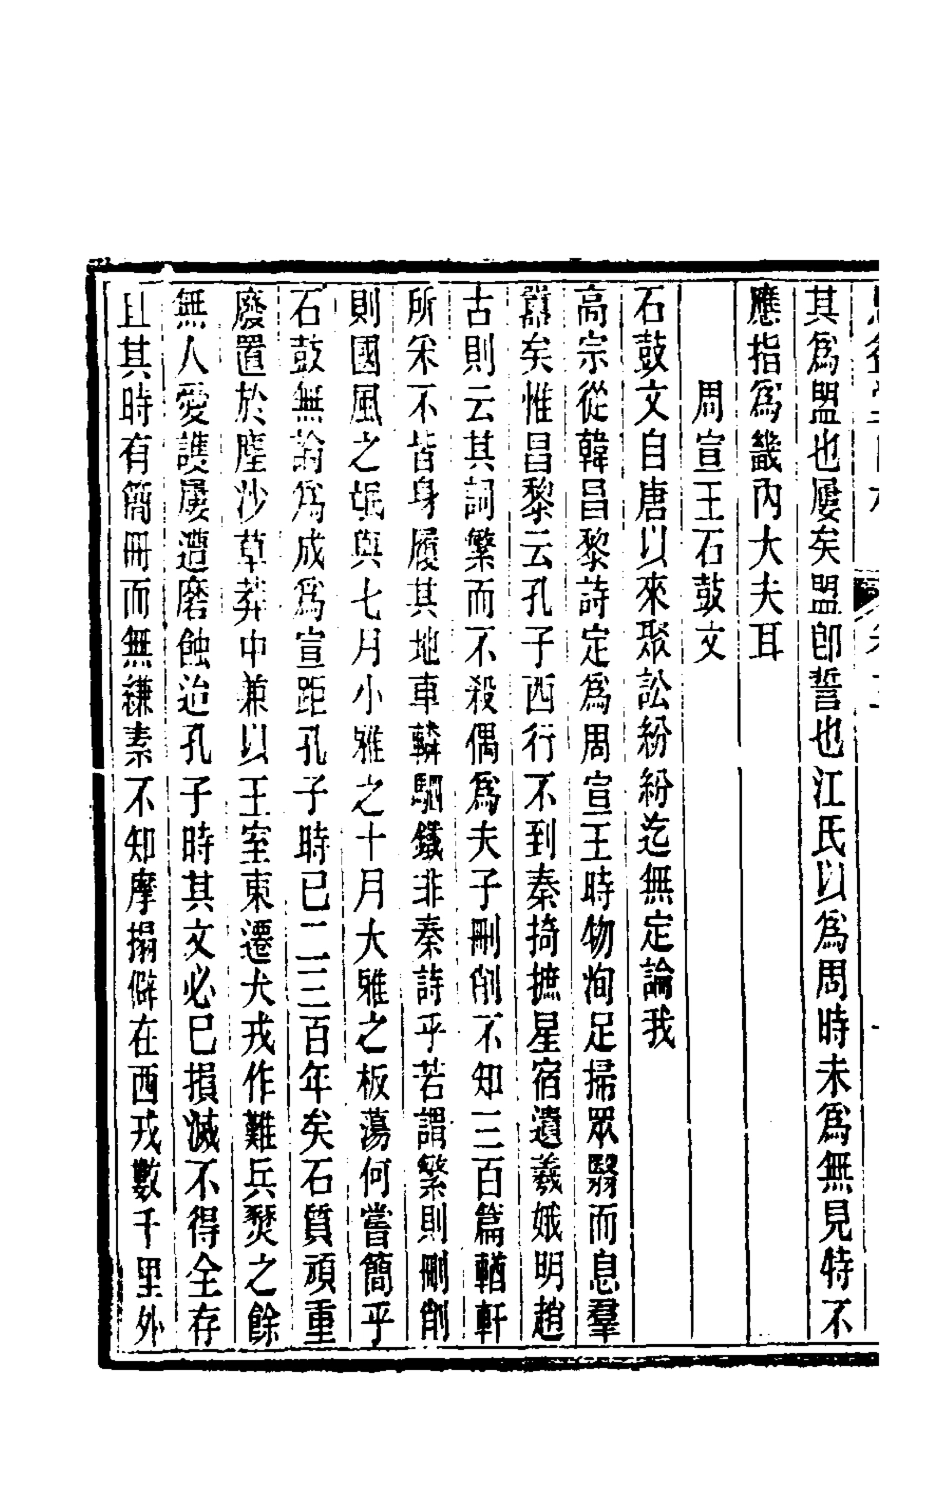 其爲盟也屢矣盟卽誓也江氏以爲周時未爲無見特不
應指爲畿內大夫耳
周宣王石鼓文
石鼓文自唐以來聚訟紛紛迄無定論我
高宗從韓昌黎詩定爲周宣王時物洵足掃眾翳而息羣
囂矣惟昌黎云孔子西行不到秦掎摭星宿遺羲娥明趙
古則云其詞繁而不殺偶爲夫子刪削不知三百篇輶軒
所采不皆身履其地車轔駟鐵非秦詩乎若謂繁則刪削
則國風之氓與七月小雅之十月大雅之板蕩何嘗簡乎
石鼓無論爲成爲宣距孔子時已二三百年矣石質頑重
廢置於塵沙草莽中兼以王室東遷犬戎作難兵燹之餘
無人愛護屢遭磨蝕迨孔子時其文必已損滅不得全存
且其時有簡冊而無縑素不知摩搨僻在西戎數千里外